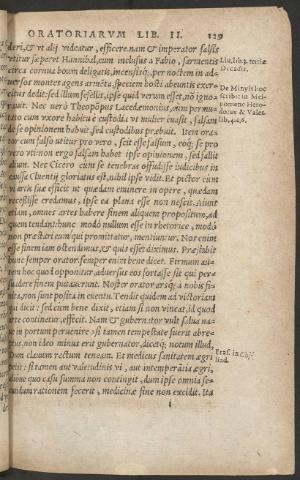 ORATORIARVM LIB. II. 129
deri, & vt alij videatur, efficere. nam & imperator falsis
vtitur sæpe vt Hannibal, cum inclusus a Fabio, sarmentis
circa cornua boum deligatis, incensisq́;, per noctem in ad-
uersos montes agens armēta, speciem hosti abeuntis exer-
citus dedit: sed illum fefellit, ipse quid verum esset, nō igno-
rauit. Nec uerò Theopōpus Lacedæmonius, cum permu-
tato cum vxore habitu è custodia vt mulier euasit, falsam
de se opinionem habuit, sed custodibus præbuit. Item ora-
tor cum falso utitur pro vero, scit esse falsum, eoq́; se pro
vero vti: non ergo falsam habet ipse opinionem, sed fallit
alium. Nec Cicero cum se tenebras offudisse iudicibus in
causa Cluentij gloriatus est, nihil ipse vidit. Et pictor cum
vi artis suæ efficit ut quædam eminere in opere, quædam
recessisse credamus, ipse ea plana esse non nescit. Aiunt
etiam, omnes artes habere finem aliquem propositum, ad
quem tendant: hunc modò nullum esse in rhetorice, modò
non præstari eum qui promittatur, mentiuntur. Nos enim
esse finem iam ostendimus, & quis esset diximus. Præstabit
hunc semper orator. semper enim bene dicet. Firmum au-
tem hoc quod opponitur, aduersus eos fortasse sit qui per-
suadere finem putauerunt. Noster orator arsq́; a nobis fi-
nita, non sunt posita in euentu. Tendit quidem ad victoriam
qui dicit: sed cum bene dixit, etiam si non vincat, id quod
arte continetur, effecit. Nam & gubernator vult salua na-
ue in portum peruenire: si tamen tempestate fuerit abre-
ptus, non ideo minus erit gubernator, dicetq́; notum illud,
Dum clauum rectum teneam. Et medicus sanitatem ægri
petit: si tamen aut valetudinis vi, aut intemperātia ægri,
aliove quo casu summa non contingit, dum ipse omnia se-
cundum rationem fecerit, medicinæ fine non excidit. Ita
i
Liu. lib. 2. tertiæ
Decadis.
De Minyis hoc
scribit in Mel-
pomene Hero-
dotus & Valer.
lib. 4. c. 6.